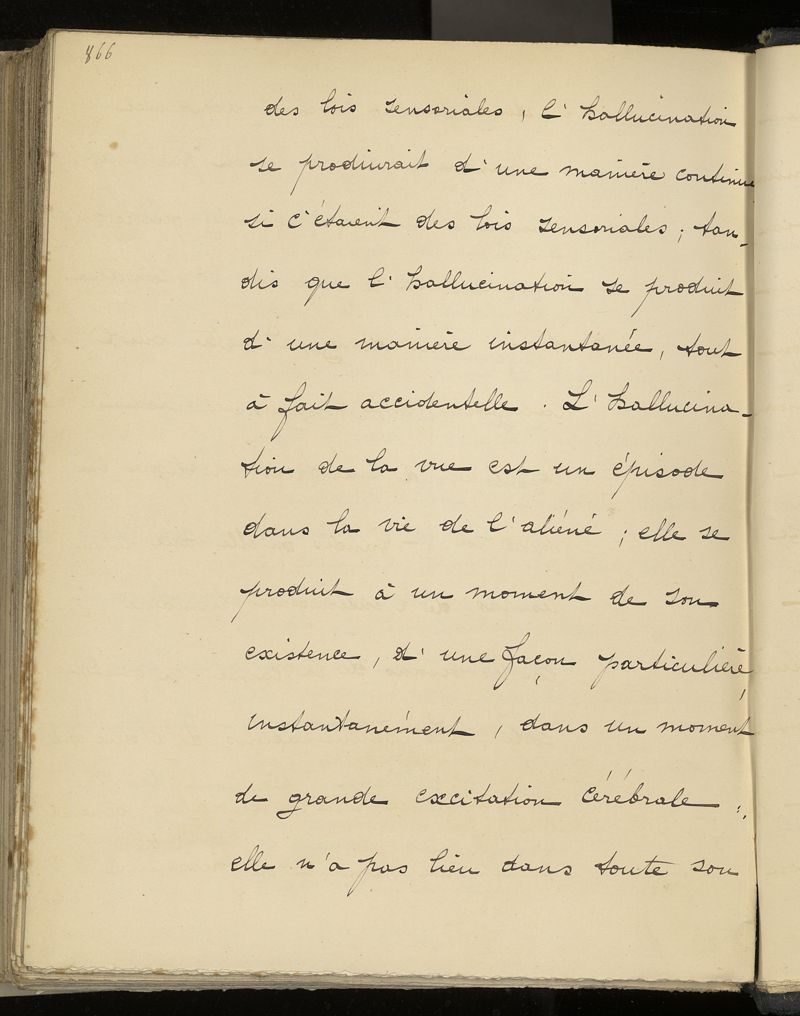 866
des lois sensoriales, l'hallucination
se produirait d'une manière continue
si c'étaient des lois sensoriales; tan-
dis que l'hallucination se produit
d'une manière instantanée, tout
à fait accidentelle. L'hallucina-
tion de la vue est un épisode
dans la vie de l'aliéné; elle se
produit à un moment de son
existence, d'une façon particulière,
instantanément, dans un moment
de grande excitation cérébrale;
elle n'a pas lieu dans toute son